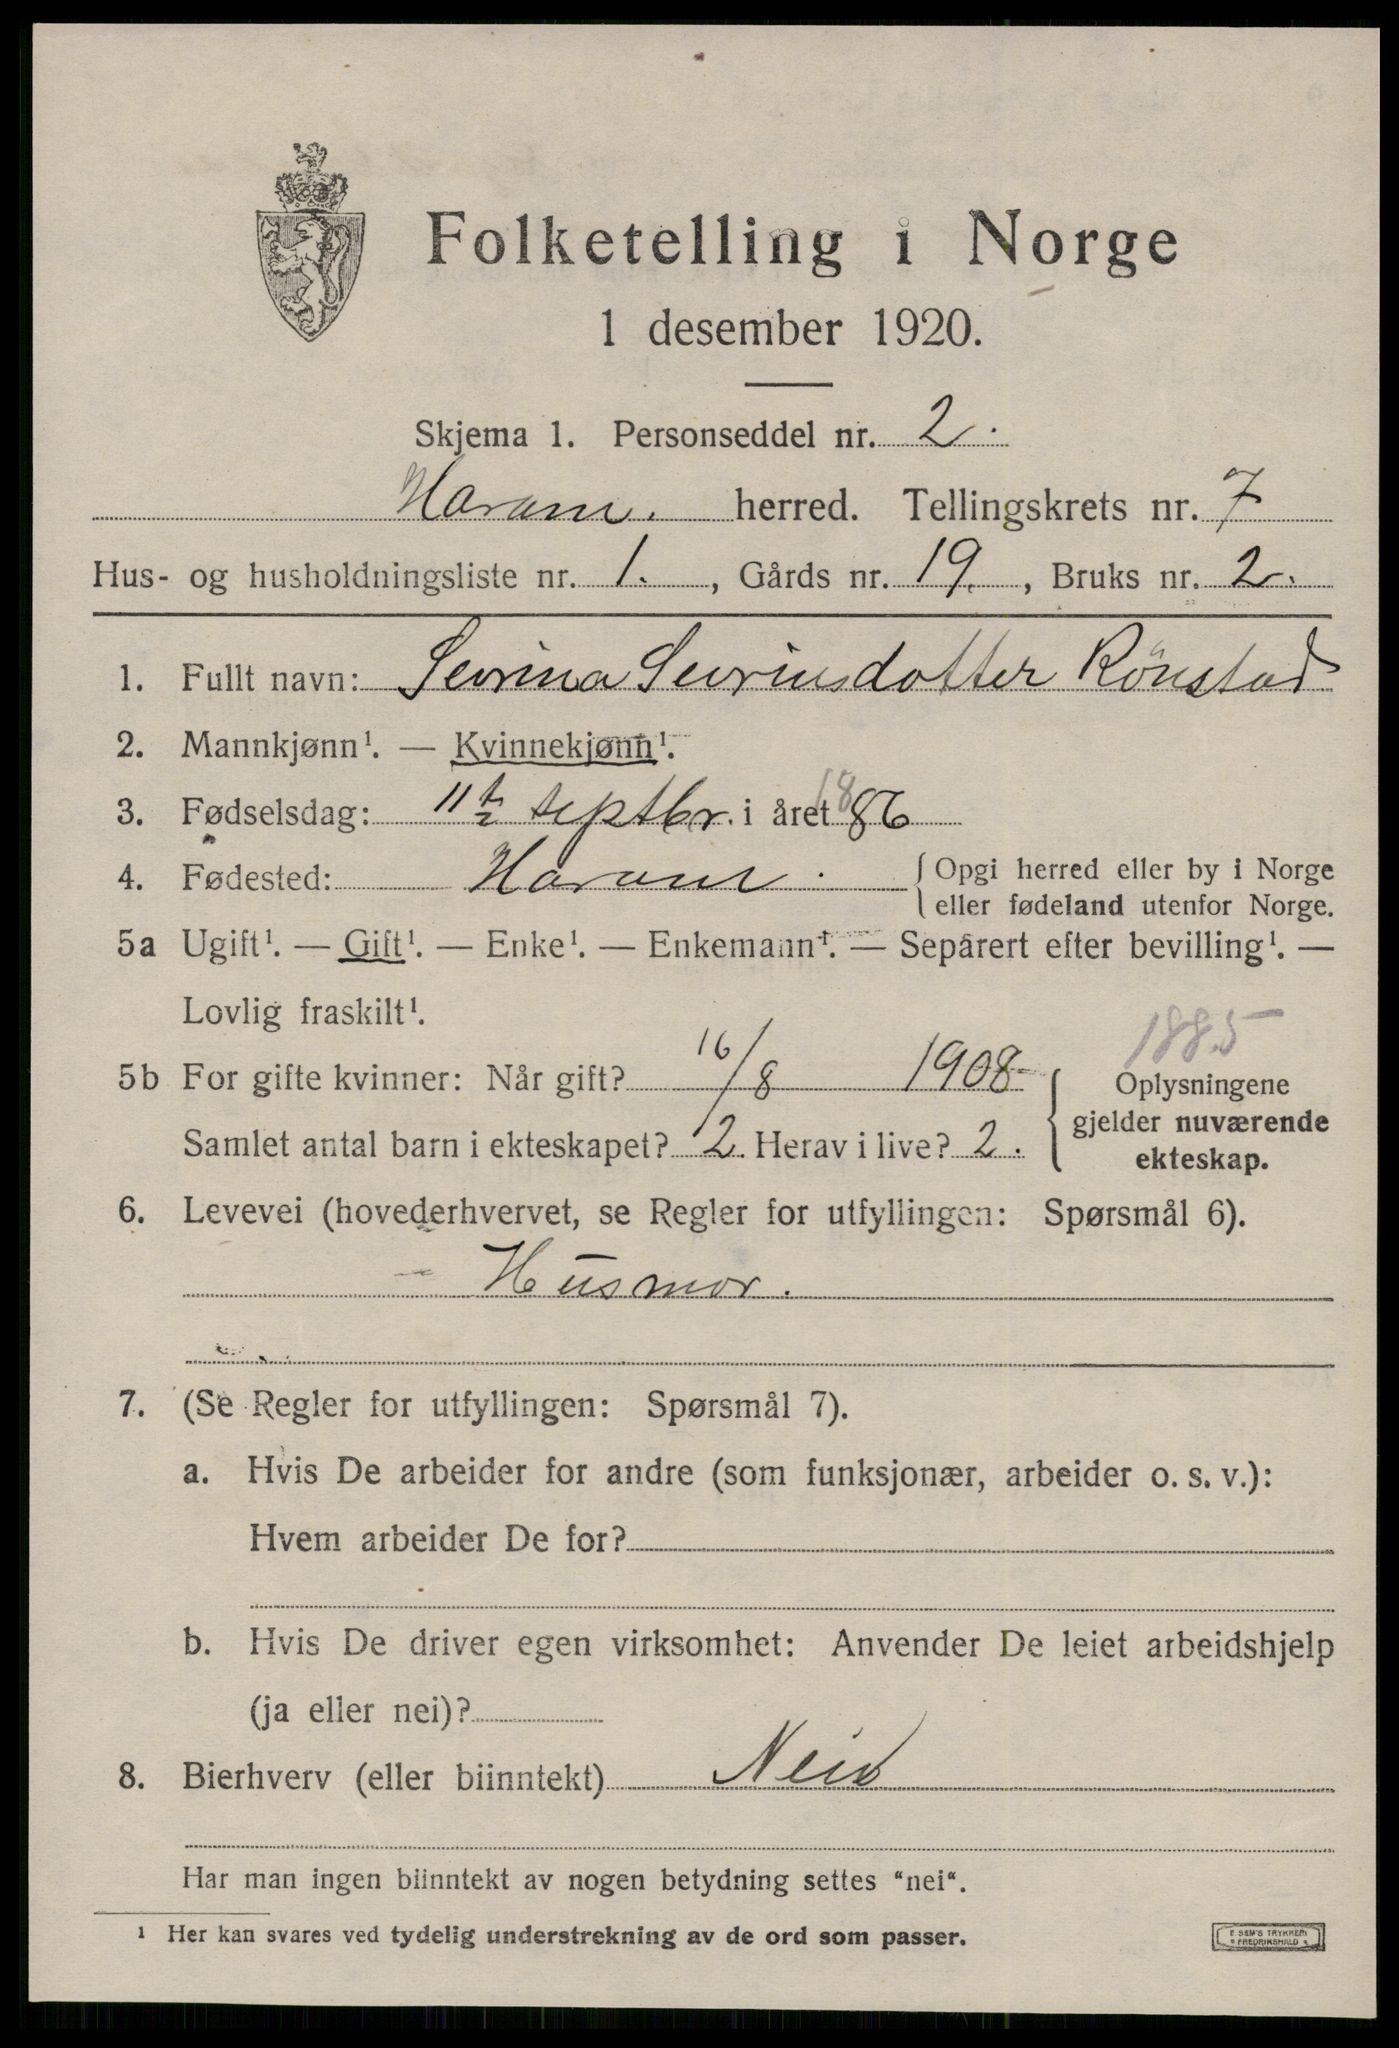 Folketelling i Norge
1 desember 1920.
Skjema 1. Personseddel nr. 2.
Haram. herred. Tellingskrets nr. 7
Hus- og husholdningsliste nr. 1., Gårds nr. 19., Bruks nr. 2.
1. Fullt navn: Sevrina Sevrinsdotter Rönstad
2. Mannkjønn¹. — Kvinnekjønn¹.
3. Fødselsdag: 11te septbr. i året 1886
4. Fødested: Haram. { Opgi herred eller by i Norge
eller fødeland utenfor Norge.
5a Ugift¹. — Gift¹. — Enke¹. — Enkemann¹. — Separert efter bevilling¹. —
Lovlig fraskilt¹.
1885
5b For gifte kvinner: Når gift? 16/8 1908
Samlet antal barn i ekteskapet? 2. Herav i live? 2.
{ Oplysningene
gjelder nuværende
ekteskap.
6. Levevei (hovederhvervet, se Regler for utfyllingen: Spørsmål 6).
Husmor.
7. (Se Regler for utfyllingen: Spørsmål 7).
a. Hvis De arbeider for andre (som funksjonær, arbeider o. s. v.):
Hvem arbeider De for?
b. Hvis De driver egen virksomhet: Anvender De leiet arbeidshjelp
(ja eller nei)?
8. Bierhverv (eller biinntekt) Nei
Har man ingen biinntekt av nogen betydning settes "nei".
¹ Her kan svares ved tydelig understrekning av de ord som passer.
E. SEM'S TRYKKERI
FREDRIKSHALD